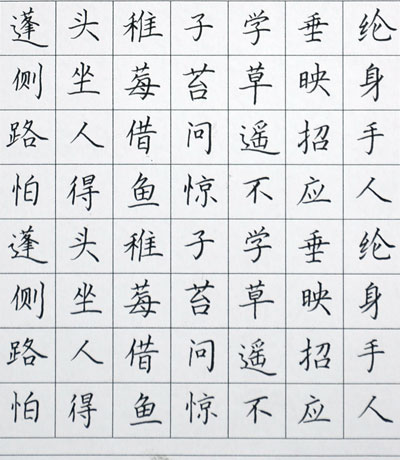 蓬头稚子学垂纶
侧坐莓苔草映身
路人借问遥招手
怕得鱼惊不应人
蓬头稚子学垂纶
侧坐莓苔草映身
路人借问遥招手
怕得鱼惊不应人